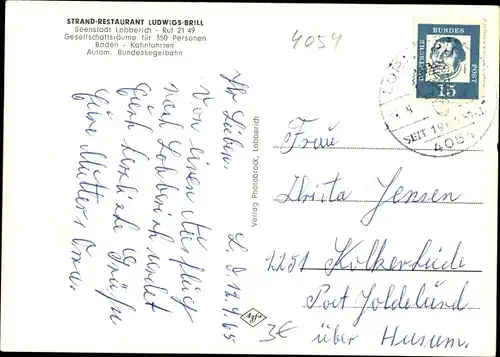 STRAND-RESTAURANT LUDWIGS-BRILL
Seenstadt Lobberich - Ruf 21 49
Gesellschaftsräume für 350 Personen
Baden - Kahnfahrten
Autom. Bundeskegelbahn
4054
DEUTSCHE
BUNDES
POST
15
SEIT 19
4054
L. d. 12.9.65
Ihr Lieben.
Von einem Ausflug
nach Lobberich sendet
Euch herzliche Grüße
Eure Mutter u.
Oma.
Verlag Photobrock, Lobberich
Frau
Christa Jensen
2251 Kolkerheide
Post Joldelund
über Husum.
3€